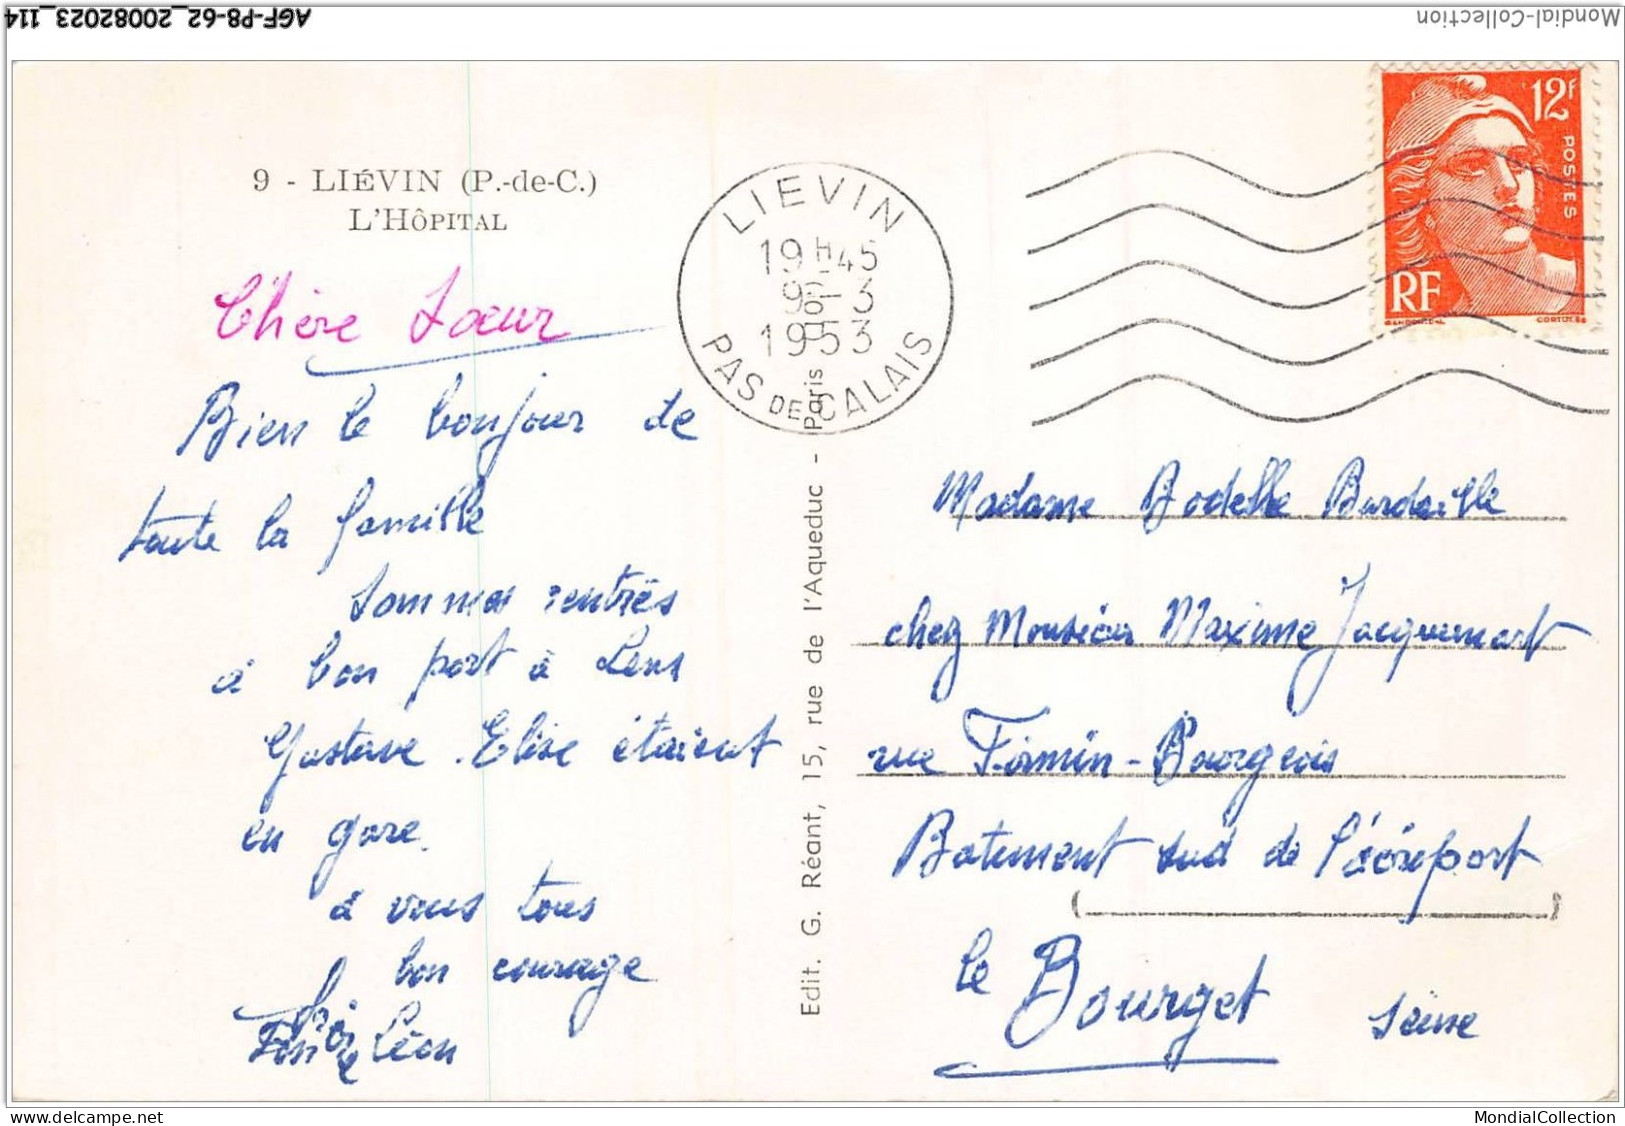 AGF-P8-62_20082023_114
Mondial-Collection
9 - LIÉVIN (P.-de-C.)
L'HÔPITAL
Chère Sœur
Bien le bonjour de
toute la famille
Sommes rentrés
à bon port à Lens
Gustave . Elise étaient
en gare.
à vous tous
bon courage
Léon
LIEVIN
19H45
9-3
1953
PAS DE CALAIS
Edit. G. Réant, 15, rue de l'Aqueduc - Paris
12F
POSTES
RF
GANDON DEL
CORTOT SC
Madame Bodelle Bardaille
chez Monsieur Maxime Jacquemart
rue Firmin-Bourgeois
Batiment sud de l'aéroport
le Bourget
Seine
MondialCollection